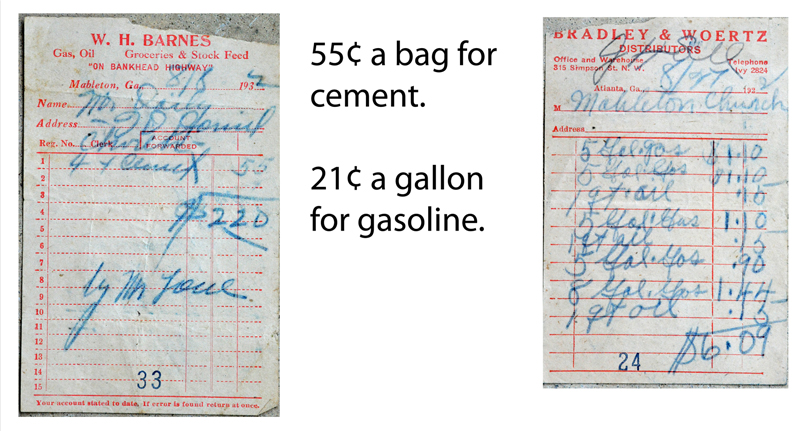 W. H. BARNES
Gas, Oil Groceries & Stock Feed
"ON BANKHEAD HIGHWAY"
Mableton, Ga. 8/8 1932
Name Mr.
Address
Reg. No. Clerk ACCOUNT FORWARDED
1 4 x Cement 55
2
3
4 $2.20
5
6
7
8
9 by Mr
10
11
12
13
14
15 33
Your account stated to date. If error is found return at once.
55¢ a bag for
cement.
21¢ a gallon
for gasoline.
BRADLEY & WOERTZ
DISTRIBUTORS
Office and Warehouse
315 Simpson St. N. W.
Telephone
Ivy 2824
Atlanta, Ga., 8/27 1932
M Mableton Church
Address
5 Gal. Gas $1.10
5 Gal. Gas $1.10
1 qt. oil .15
5 Gal. Gas 1.10
1 qt oil .15
5 Gal. Gas .90
8 Gal. Gas 1.44
1 qt oil .15
$6.09
24